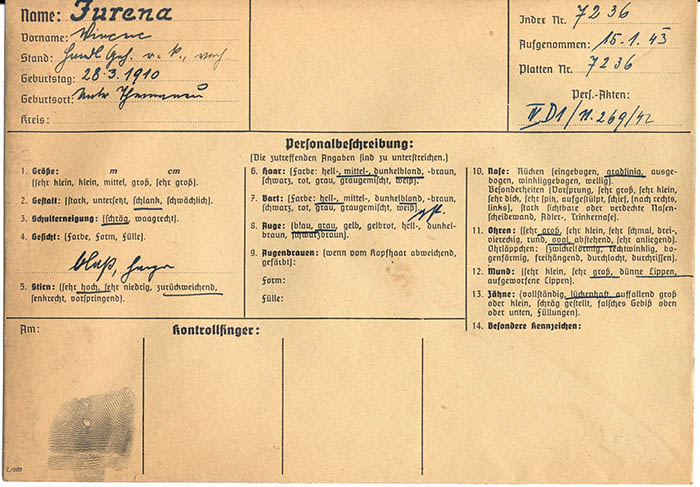 Name: Jurena
Vorname: Vincenc
Stand: r. k., verh.
Geburtstag: 28.3.1910
Geburtsort: Unter
Kreis:
Index Nr. 7236
Aufgenommen: 15.1.43
Platten Nr. 7236
Pers.-Akten:
IV D1/N. 269/42
Personalbeschreibung:
(Die zutreffenden Angaben sind zu unterstreichen.)
1. Größe: m cm
(sehr klein, klein, mittel, groß, sehr groß).
2. Gestalt: (stark, untersetzt, schlank, schwächlich).
3. Schulterneigung: (schräg, waagrecht).
4. Gesicht: (Farbe, Form, Fülle).
blaß,
5. Stirn: (sehr hoch, sehr niedrig, zurückweichend,
senkrecht, vorspringend).
6. Haar: (Farbe: hell-, mittel-, dunkelblond, -braun,
schwarz, rot, grau, graugemischt, weiß).
7. Bart: (Farbe: hell-, mittel-, dunkelblond, -braun,
schwarz, rot, grau, graugemischt, weiß).
8. Auge: (blau, grau, gelb, gelbrot, hell-, dunkel-
braun, schwarzbraun).
9. Augenbrauen: (wenn vom Kopfhaar abweichend,
gefärbt):
Form:
Fülle:
10. Nase: Rücken (eingebogen, gradlinig, ausge-
bogen, winkliggebogen, wellig).
Besonderheiten (Vorsprung, sehr groß, sehr klein,
sehr dick, sehr spitz, aufgestülpt, schief, (nach rechts,
links), stark sichtbare oder verdeckte Nasen-
scheidewand, Adler-, Trinkernase).
11. Ohren: (sehr groß, sehr klein, sehr schmal, drei-,
viereckig, rund, oval, abstehend, sehr anliegend).
Ohrläppchen: (zwickelförmig, rechtwinklig, bo-
genförmig, freihängend, durchlocht, durchrissen).
12. Mund: (sehr klein, sehr groß, dünne Lippen,
aufgeworfene Lippen).
13. Zähne: (vollständig, lückenhaft, auffallend groß
oder klein, schräg gestellt, falsches Gebiß oben
oder unten, Füllungen).
14. Besondere Kennzeichen:
Am:
Kontrollfinger: